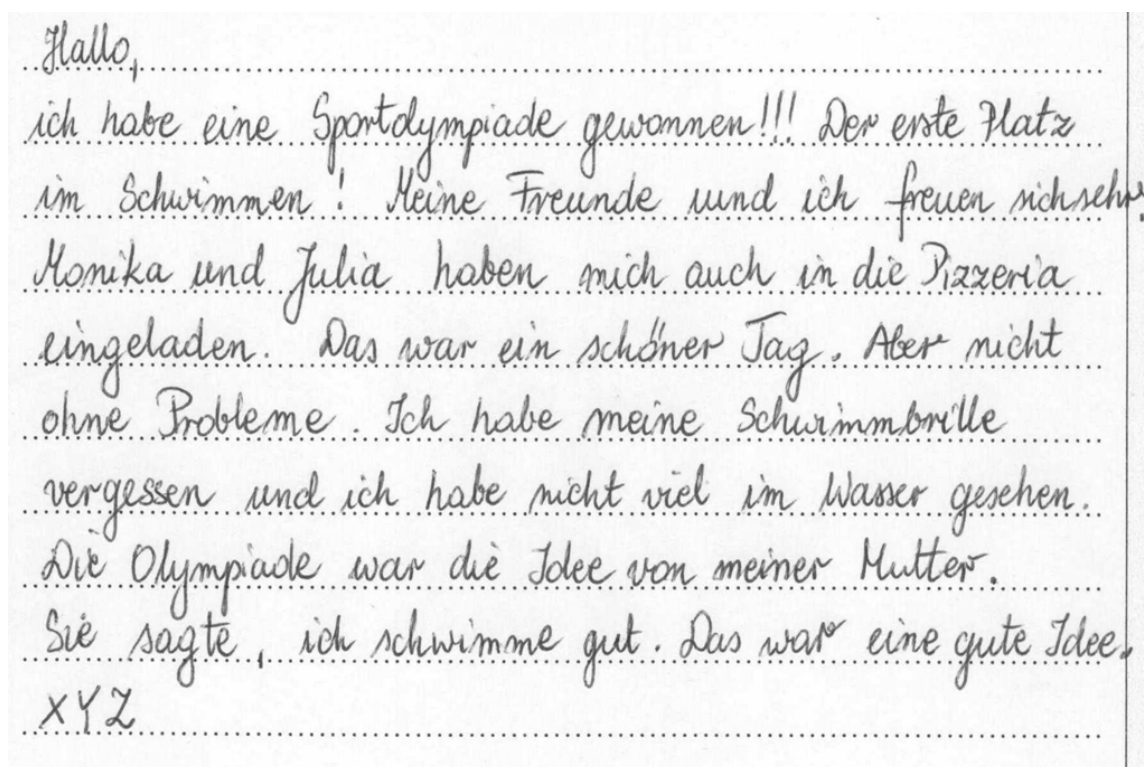 Hallo,
ich habe eine Sportolympiade gewonnen!!! Der erste Platz
im Schwimmen! Meine Freunde uund ich freuen sich sehr.
Monika und Julia haben mich auch in die Pizzeria
eingeladen. Das war ein schöner Tag. Aber nicht
ohne Probleme. Ich habe meine Schwimmbrille
vergessen und ich habe nicht viel im Wasser gesehen.
Die Olympiade war die Idee von meiner Mutter.
Sie sagte, ich schwimme gut. Das war eine gute Idee.
XYZ